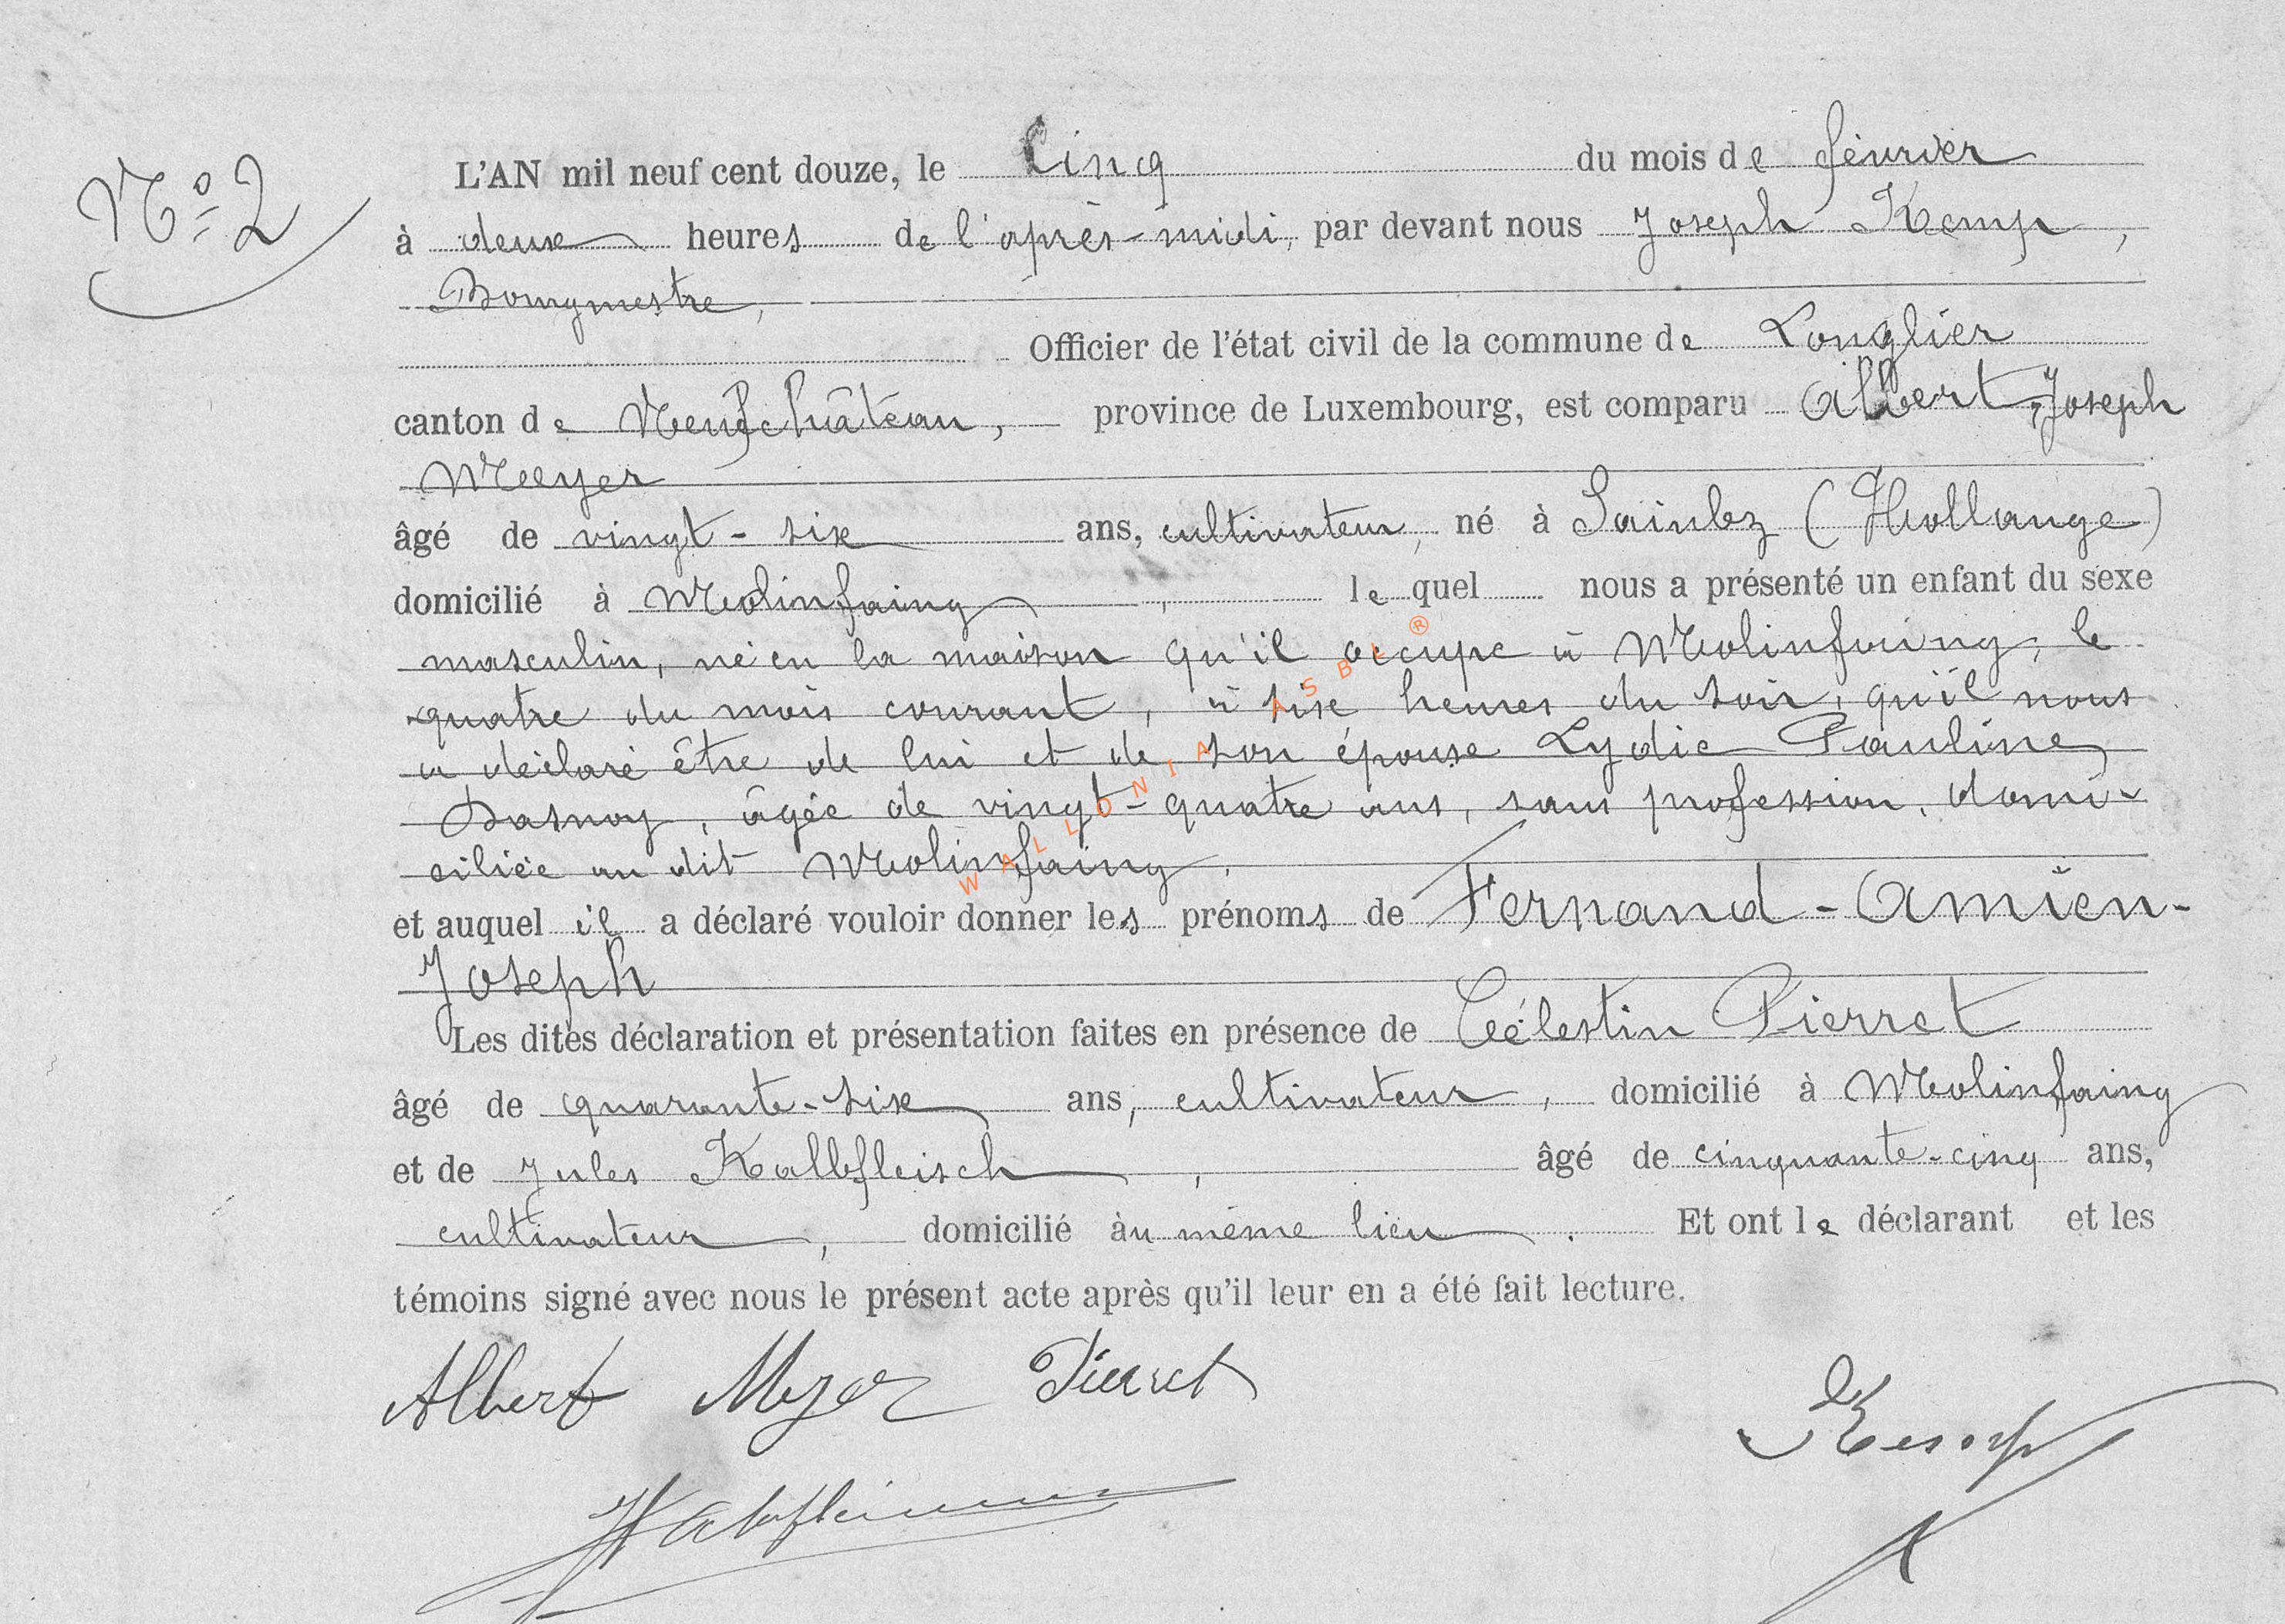 N° 2
L'AN mil neuf cent douze, le Cinq du mois de février
à deux heures de l'après-midi, par devant nous Joseph Kemp,
Bourgmestre,
Officier de l'état civil de la commune de Longlier
canton de Neufchâteau, province de Luxembourg, est comparu Albert-Joseph
Meyer
âgé de vingt-six ans, cultivateur, né à Sainlez (Hollange)
domicilié à Molinfaing, lequel nous a présenté un enfant du sexe
masculin, né en la maison qu'il occupe à Molinfaing, le
quatre du mois courant, à six heures du soir, qu'il nous
a déclaré être de lui et de son épouse Lydie Pauline
Dasnoy, âgée de vingt-quatre ans, sans profession, domi-
ciliée au dit Molinfaing.
et auquel il a déclaré vouloir donner les prénoms de Fernand-Amien-
Joseph
Les dites déclaration et présentation faites en présence de Célestin Pierret
âgé de quarante-six ans, cultivateur, domicilié à Molinfaing
et de Jules Kalbfleisch, âgé de cinquante-cinq ans,
cultivateur, domicilié àu même lieu. Et ont le déclarant et les
témoins signé avec nous le présent acte après qu'il leur en a été fait lecture.
Albert Meyer Pierret
Kemp
WALLONIA ASBL ®